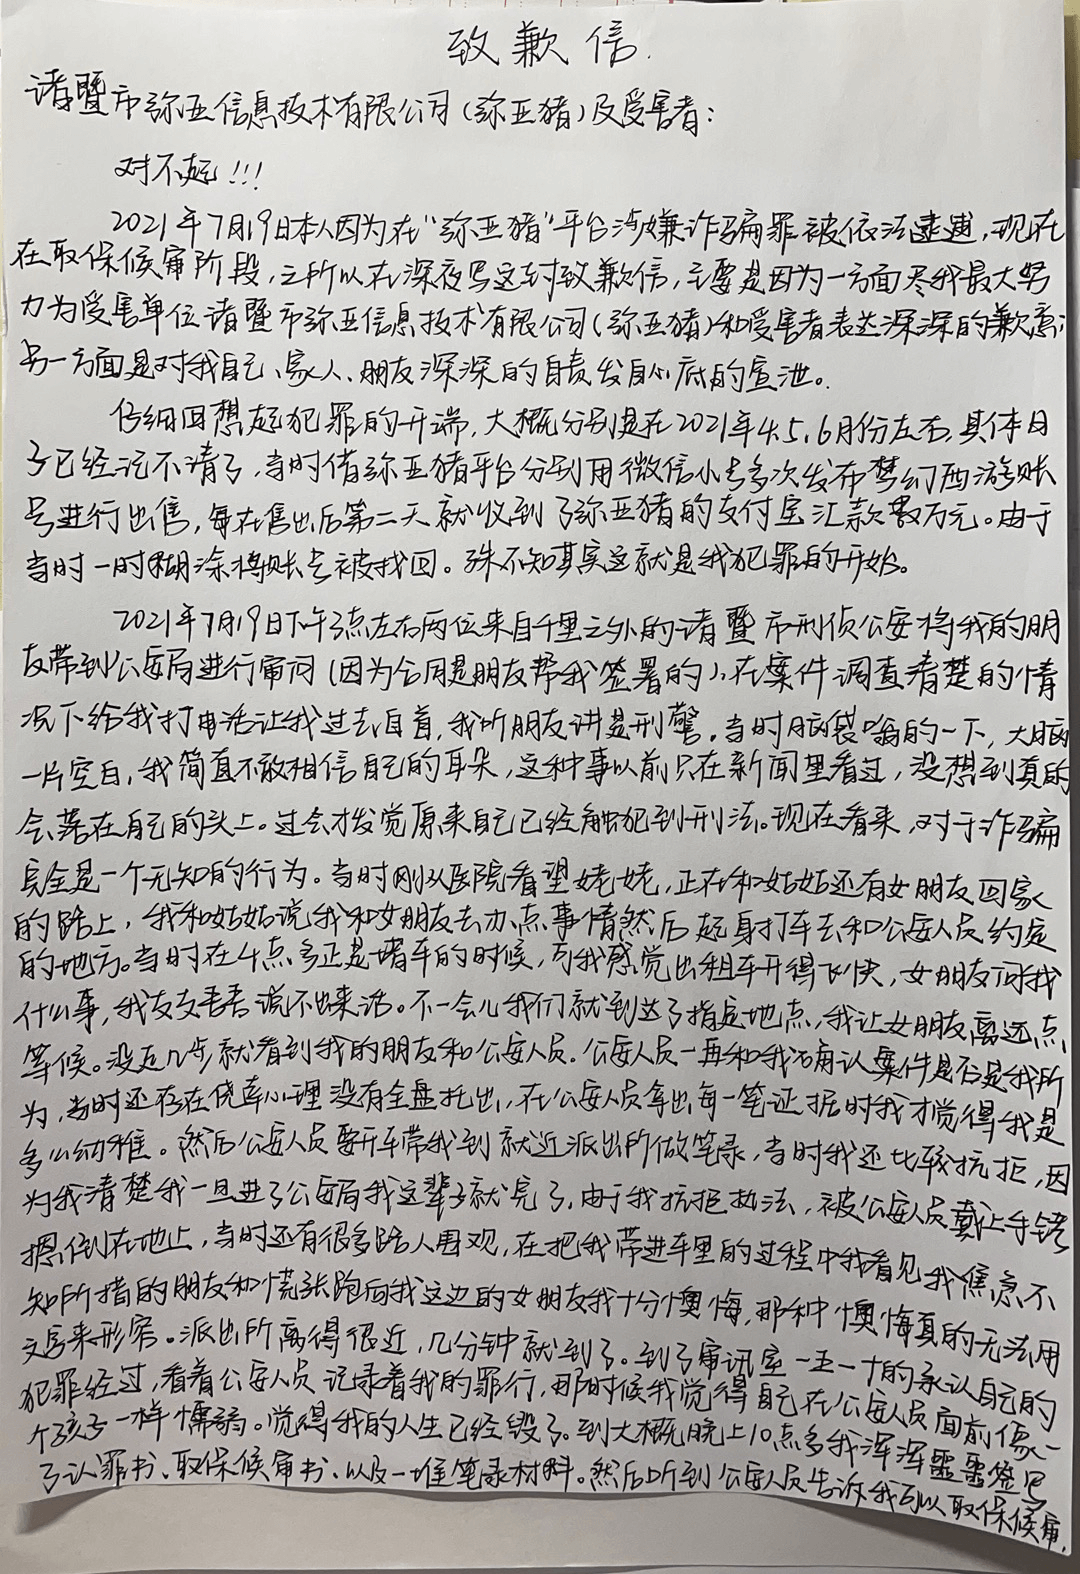 致歉信.
诸暨市弥亚信息技术有限公司(弥亚猪)及受害者:
对不起!!!
2021年7月19日本人因为在"弥亚猪"平台涉嫌诈骗罪被依法逮捕,现在
在取保候审阶段,之所以在深夜写这封致歉信,主要是因为一方面尽我最大努
力为受害单位诸暨市弥亚信息技术有限公司(弥亚猪)和受害者表达深深的歉意;
另一方面是对我自己、家人、朋友深深的自责发自心底的宣泄。
仔细回想起犯罪的开端,大概分别是在2021年4.5.6月份左右,具体日
子已经记不清了,当时借弥亚猪平台分别用微信小号多次发布梦幻西游账
号进行出售,每在售出后第二天就收到了弥亚猪的支付宝汇款数万元。由于
当时一时糊涂将账号被找回。殊不知其实这就是我犯罪的开始。
2021年7月19日下午3点左右两位来自千里之外的诸暨市刑侦公安将我的朋
友带到公安局进行审问(因为合同是朋友帮我签署的),在案件调查清楚的情
况下给我打电话让我过去自首,我听朋友讲是刑警。当时脑袋嗡的一下,大脑
一片空白,我简直不敢相信自己的耳朵,这种事以前只在新闻里看过,没想到真的
会落在自己的头上。过会才发觉原来自己已经触犯到刑法。现在看来,对于诈骗
完全是一个无知的行为。当时刚从医院看望姥姥,正在和姑姑还有女朋友回家
的路上,我和姑姑说我和女朋友去办点事情然后起身打车去和公安人员约定
的地方。当时在4点多正是堵车的时候,可我感觉出租车开得飞快,女朋友问我
什么事,我支支吾吾说不出来话。不一会儿我们就到达了指定地点,我让女朋友离远点
等候。没走几步就看到我的朋友和公安人员.公安人员一再和我确认案件是否是我所
为,当时还存在侥幸心理没有全盘托出,在公安人员拿出每一笔证据时我才觉得我是
多么幼稚。然后公安人员要开车带我到就近派出所做笔录,当时我还比较抗拒,因
为我清楚我一旦进了公安局我这辈子就完了,由于我抗拒执法,被公安人员戴上手铐
摁倒在地上,当时还有很多路人围观,在把我带进车里的过程中我看见我焦急不
知所措的朋友和慌张跑向我这边的女朋友我十分懊悔,那种懊悔真的无法用
文字来形容。派出所离得很近,几分钟就到了。到了审讯室一五一十的承认自己的
犯罪经过,看着公安人员记录着我的罪行,那时候我觉得自己在公安人员面前像一
个孩子一样懦弱。觉得我的人生已经毁了。到大概晚上10点多我浑浑噩噩签写
了认罪书、取保候审书、以及一堆笔录材料。然后听到公安人员告诉我可以取保候审,